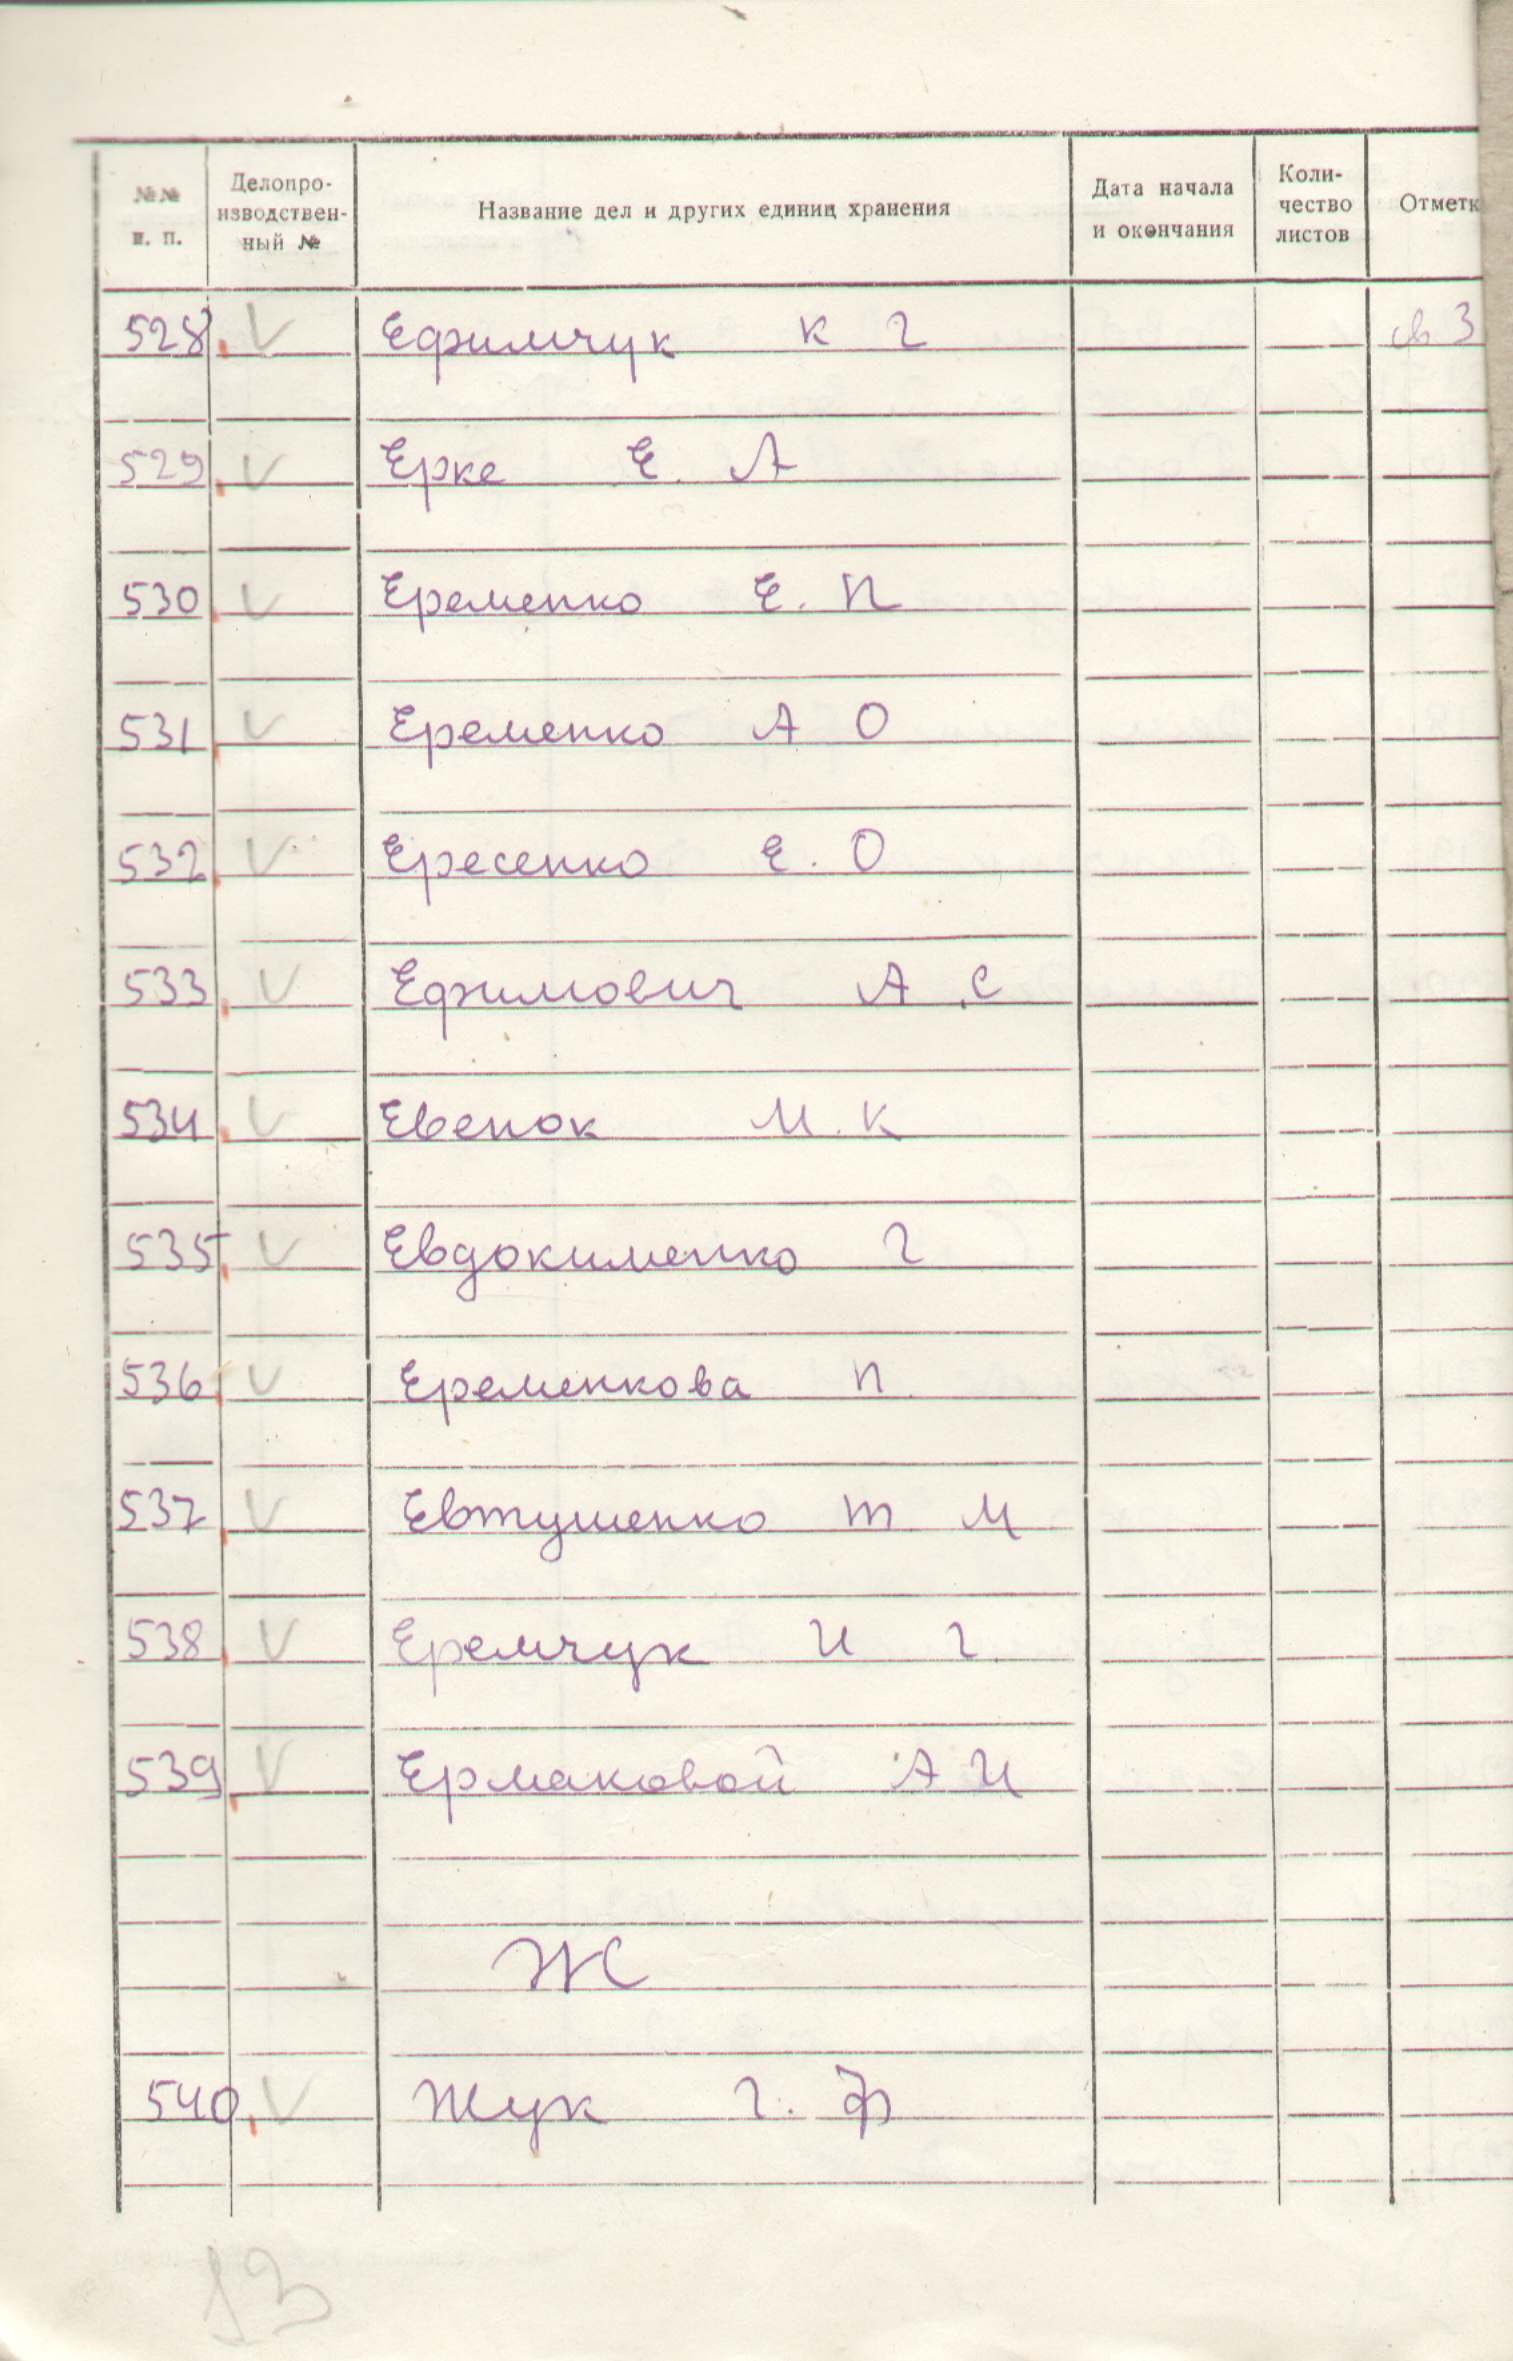 №№ п. п. Делопроизводственный № Название дел и других единиц хранения Дата начала и окончания Количество листов Отметк
528. V Ефимчук К Г св 3
529. V Ерке Е. А
530. V Еременко Е. П
531. V Еременко А О
532. V Ересенко Е. О
533. V Ефимович А. С
534. V Евенок М. К
535. V Евдокименко Г
536. V Еременкова П.
537. V Евтушенко Т М
538. V Еремчук И Г.
539. V Ермаковой А И
Ж
540. V Жук Г. Ф
13